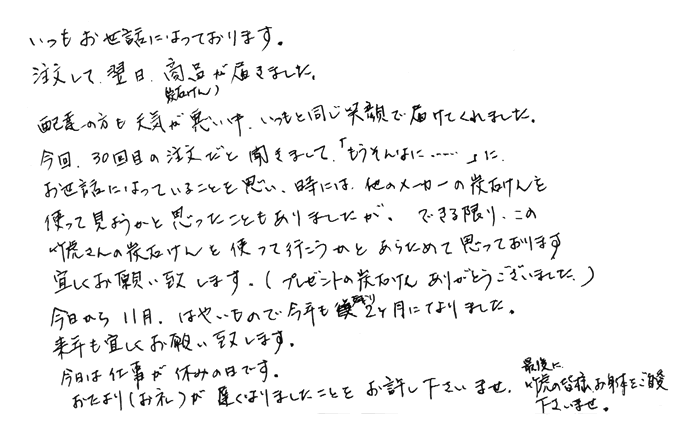 いつもお世話になっております。
注文して、翌日、商品が届きました。
(炭石けん)
配達の方も天気が悪い中、いつもと同じ笑顔で届けてくれました。
今回、30回目の注文だと聞きまして、「もうそんなに……」に、
お世話になっていることを思い、時には、他のメーカーの炭石けんを
使って見ようかと思ったこともありましたが、できる限り、この
竹虎さんの炭石けんを使って行こうかとあらためて思っております
宜しくお願い致します。(プレゼントの炭石けんありがとうございました。)
今日から11月、はやいもので今年も残り2ヶ月になりました。
来年も宜しくお願い致します。
今日は仕事が休みの日です。
おたより(お礼)が遅くなりましたことをお許し下さいませ。
最後に
竹虎の皆様、お身体をご自愛
下さいませ。